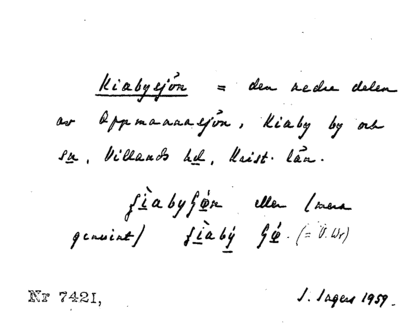 Kiabysjön = den nedre delen
av Oppmannasjön, Kiaby by och
sn, Villands hd, Krist. län.
eller (mera
genuint)
Nr 7421, I. Ingers 1959.